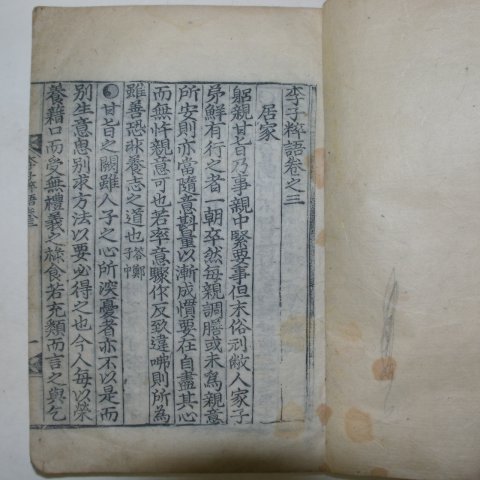 李子粹語卷之三
居家
躬親甘旨乃事親中緊要事但末俗利敝人家子
弟鮮有行之者一朝卒然每親調膳或未爲親意
所安則亦當隨意斟量以漸成慣要在自盡其心
而無忤親意可也若率意驟作反致違咈則所爲
雖善恐非養志之道也 答鄭子中
甘旨之闕雖人子之心所深憂者亦不以是而
別生意思別求方法以要必得之也今人每以榮
養藉口而受無禮義之祿食若充類而言之與乞
李子粹語卷三
一